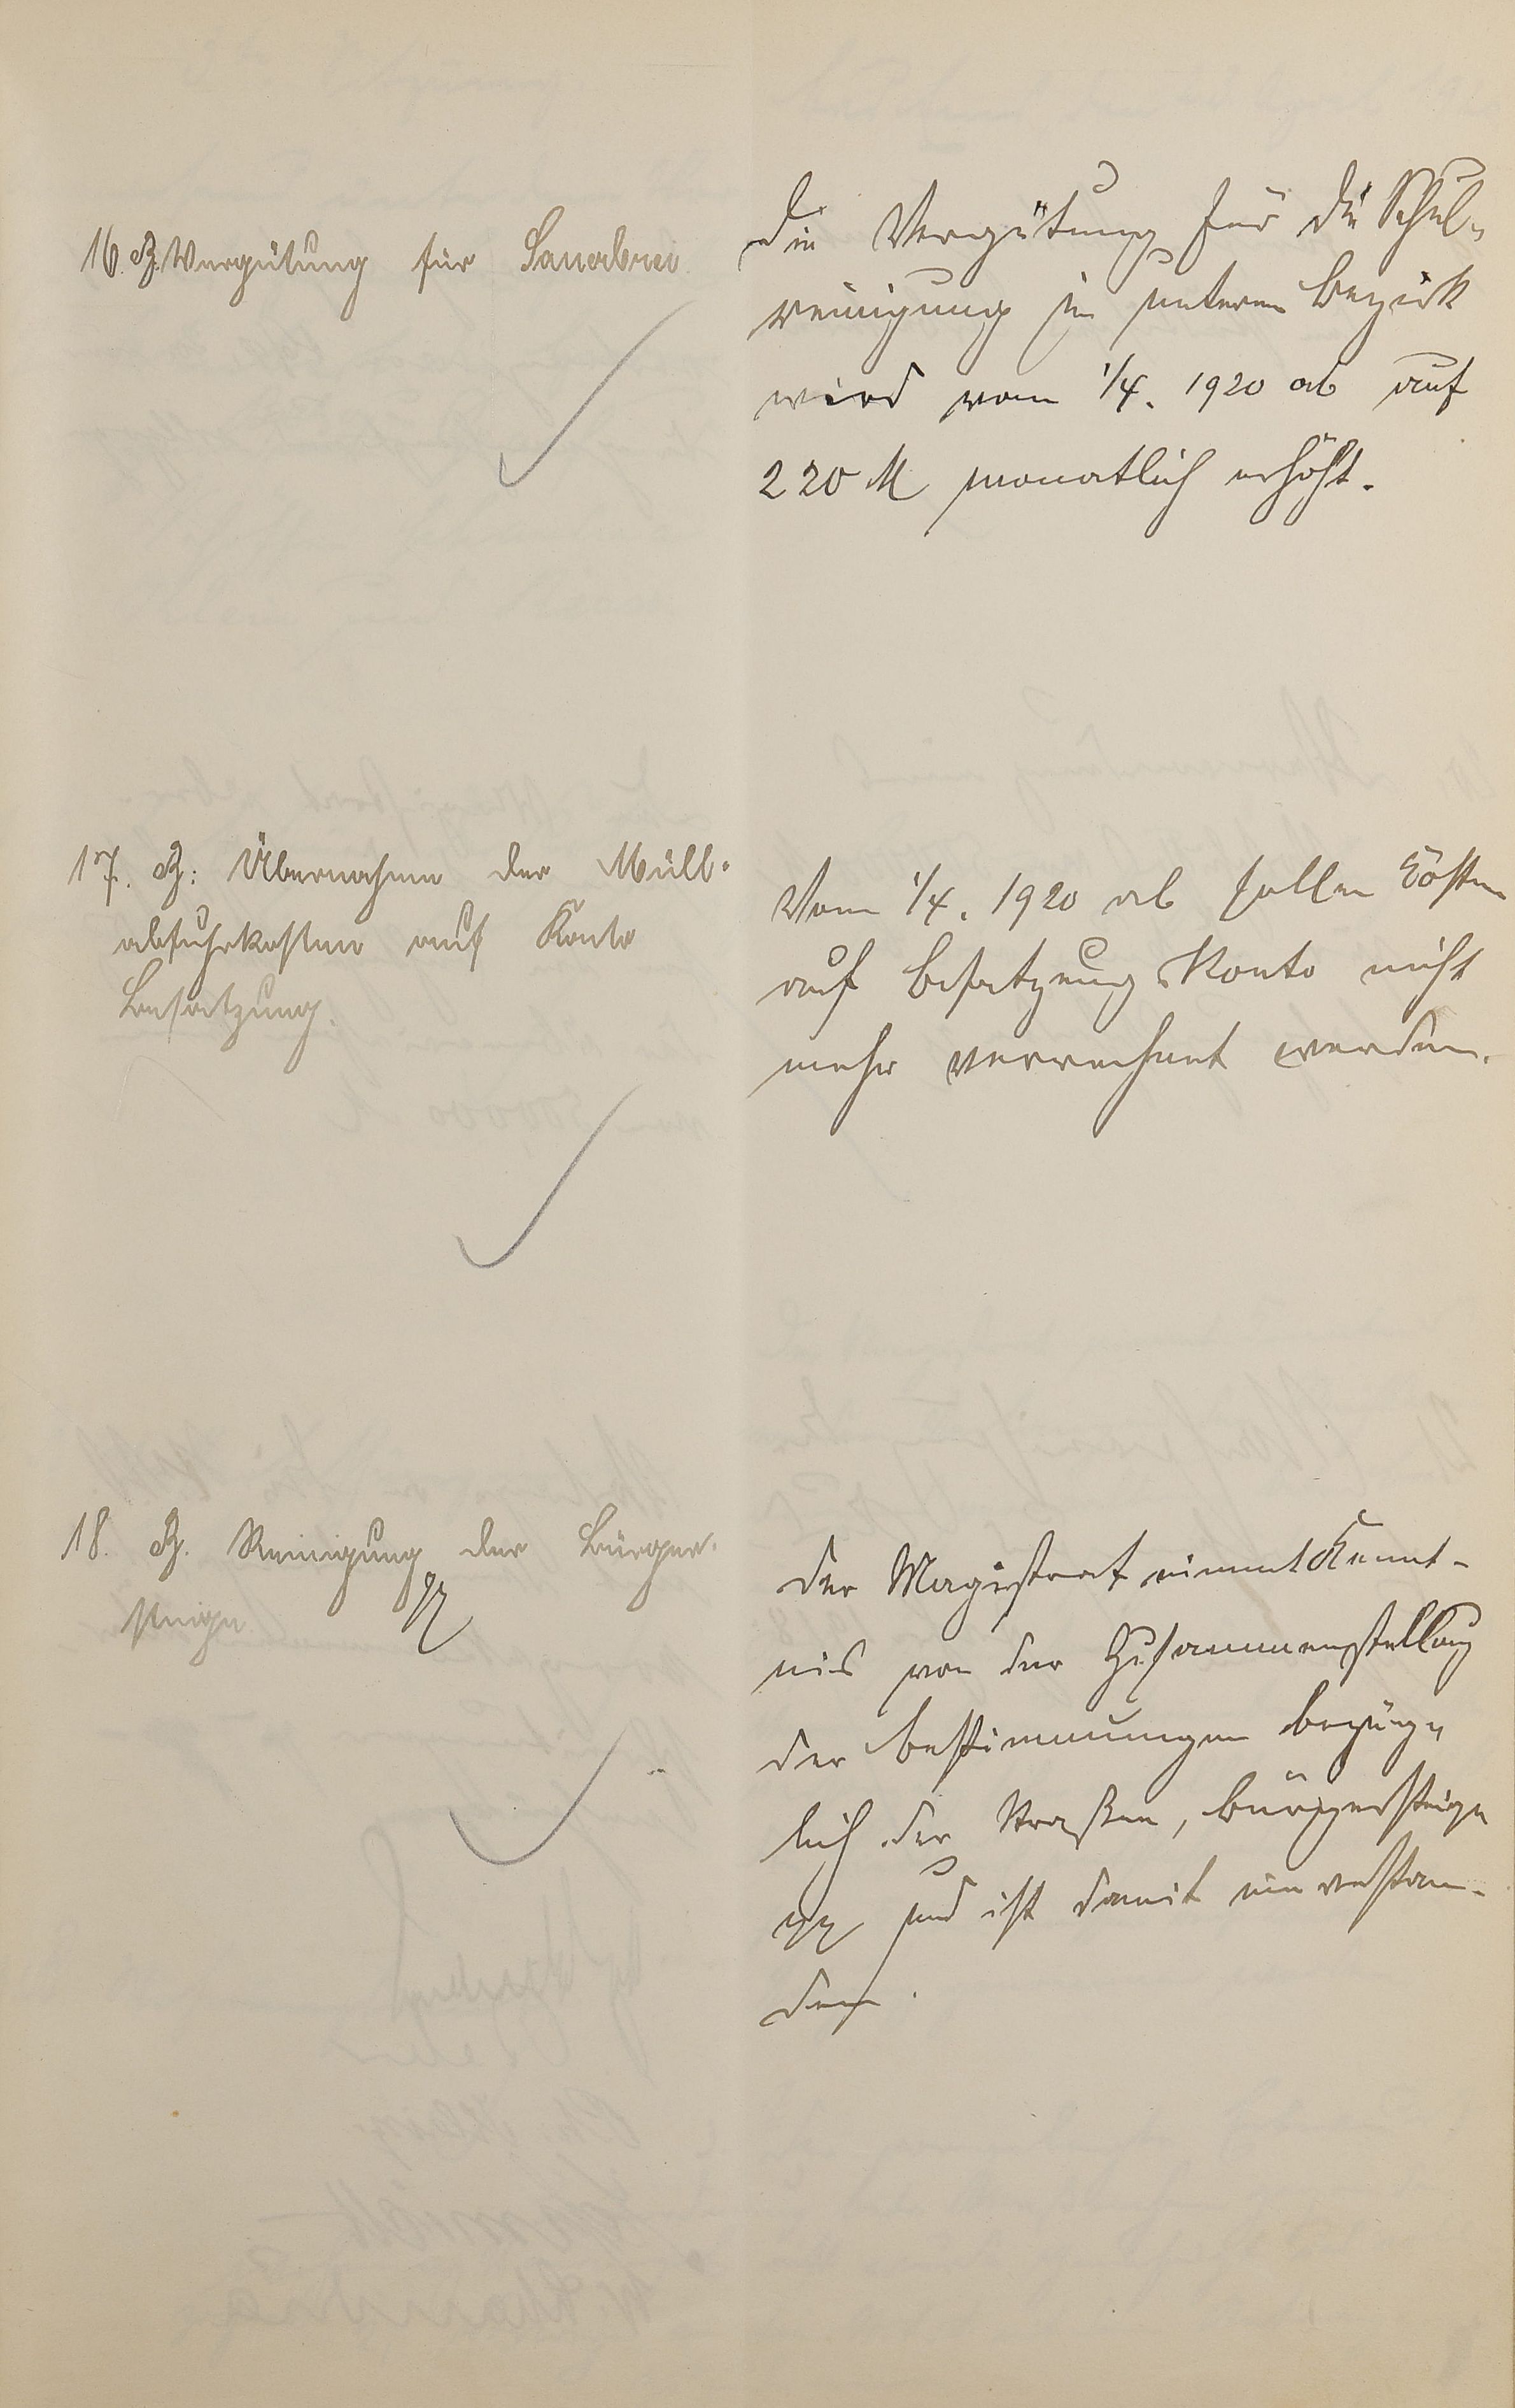 16. B. Vergütung für
Die Vergütung für die Schul-
reinigung im unteren Bezirk
wird vom 1/4. 1920 ab auf
220 M monatlich erhöht.
17. B: Übernahme der Müll-
abfuhrkosten auf Konto
Besatzung.
Vom 1/4. 1920 ab sollen Kosten
auf Besatzung Konto nicht
mehr verrechnet werden.
18. B. Reinigung der Bürger-
steige
Der Magistrat nimmt Kennt-
nis von der Zusammenstellung
der Bestimmungen bezüg-
lich der Straßen, Bürgersteige
und ist damit einverstan-
den.